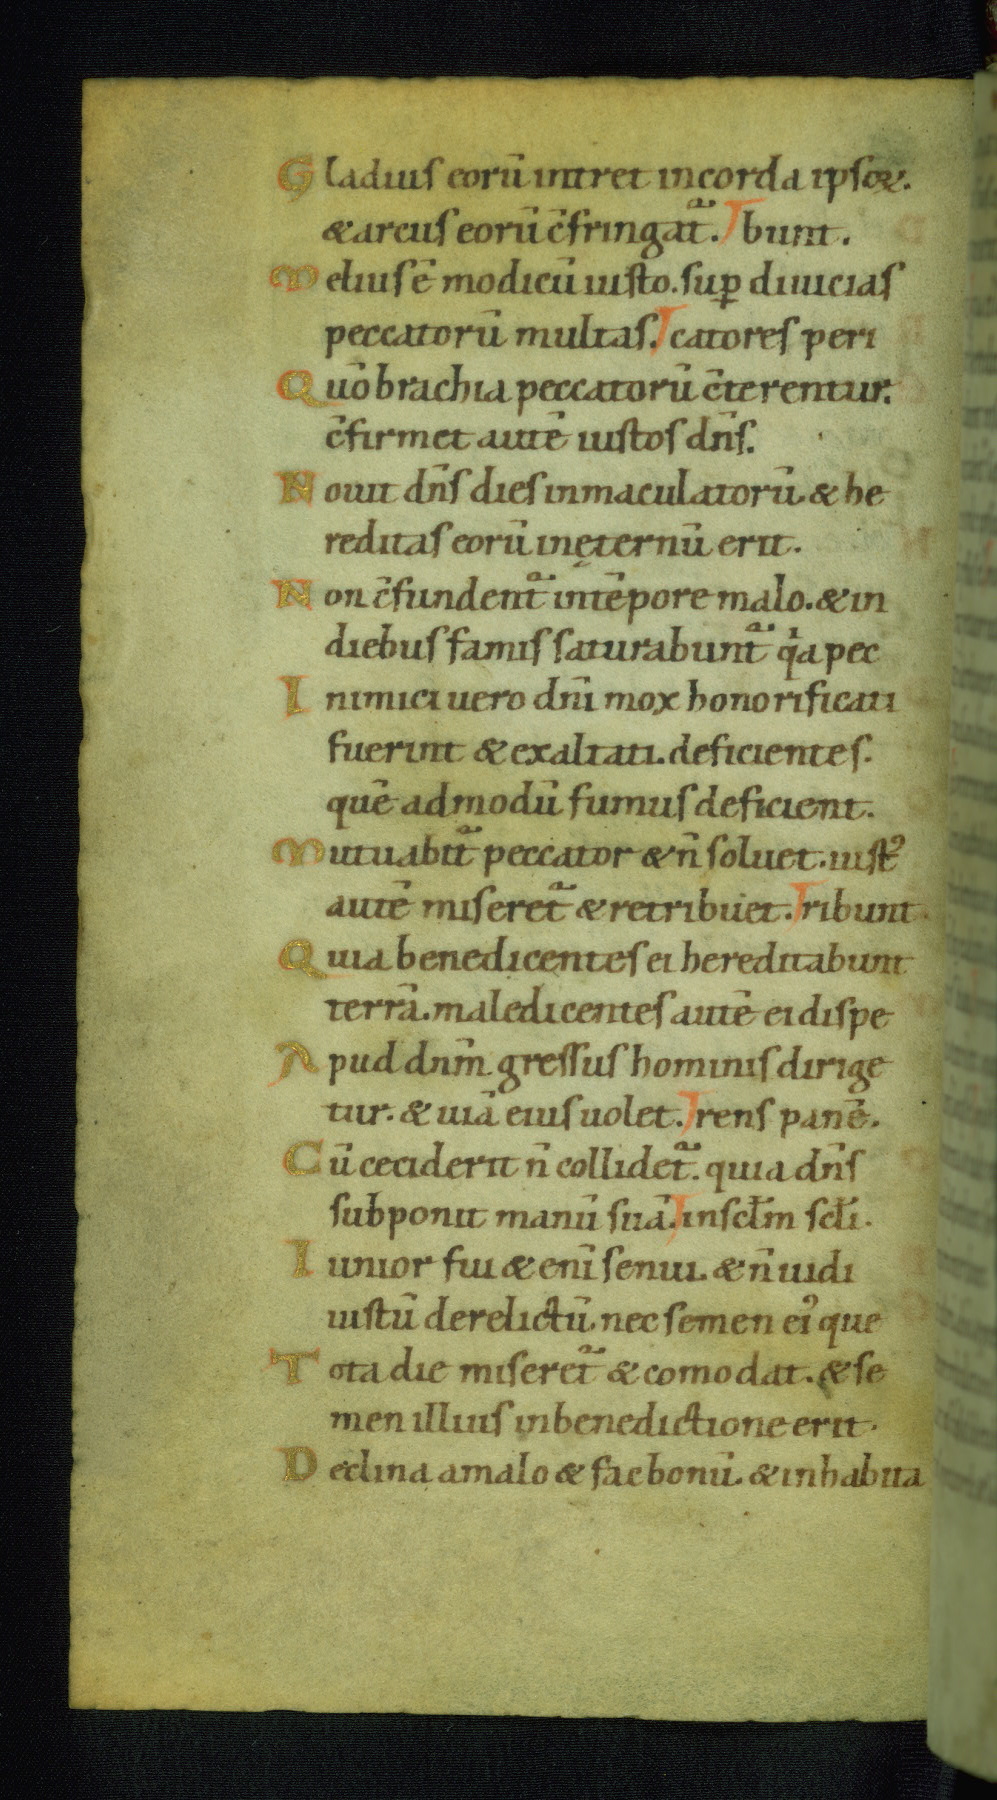 Gladius eorū intret in corda ipsoꝝ.
& arcus eorū c̄fringat᷑. bunt.
Melius ē modicū iusto. suꝑ diuicias
peccatorū multas. catores peri
Quō brachia peccatorū c̄terentur.
c̄firmet autē iustos dn̄s.
Nouit dn̄s dies inmaculatorū. & he
reditas eorū in ęternū erit.
Non c̄fundent᷑ in tēpore malo. & in
diebus famis saturabunt᷑ qͥa pec
Inimici uero dn̄i mox honorificati
fuerint & exaltati. deficientes.
quē admodū fumus deficient.
Mutuabit᷑ peccator & n̄ soluet. iustꝰ
autē miseret᷑ & retribuet. ribunt.
Quia benedicentes ei hereditabunt
terrā. maledicentes autē ei dispe
Apud dnm̄ gressus hominis dirige
tur. & uiā eius uolet. rens panē.
Cū ceciderit n̄ collidet᷑. quia dn̄s
subponit manū suā. in sctm̄ scti̅.
Iunior fui & eni̅ senui. & n̄ uidi
iustū derelictū. nec semen eiꝰ que
Tota die miseret᷑ & comodat. & se
men illius in benedictione erit.
Declina a malo & fac bonū. & inhabita